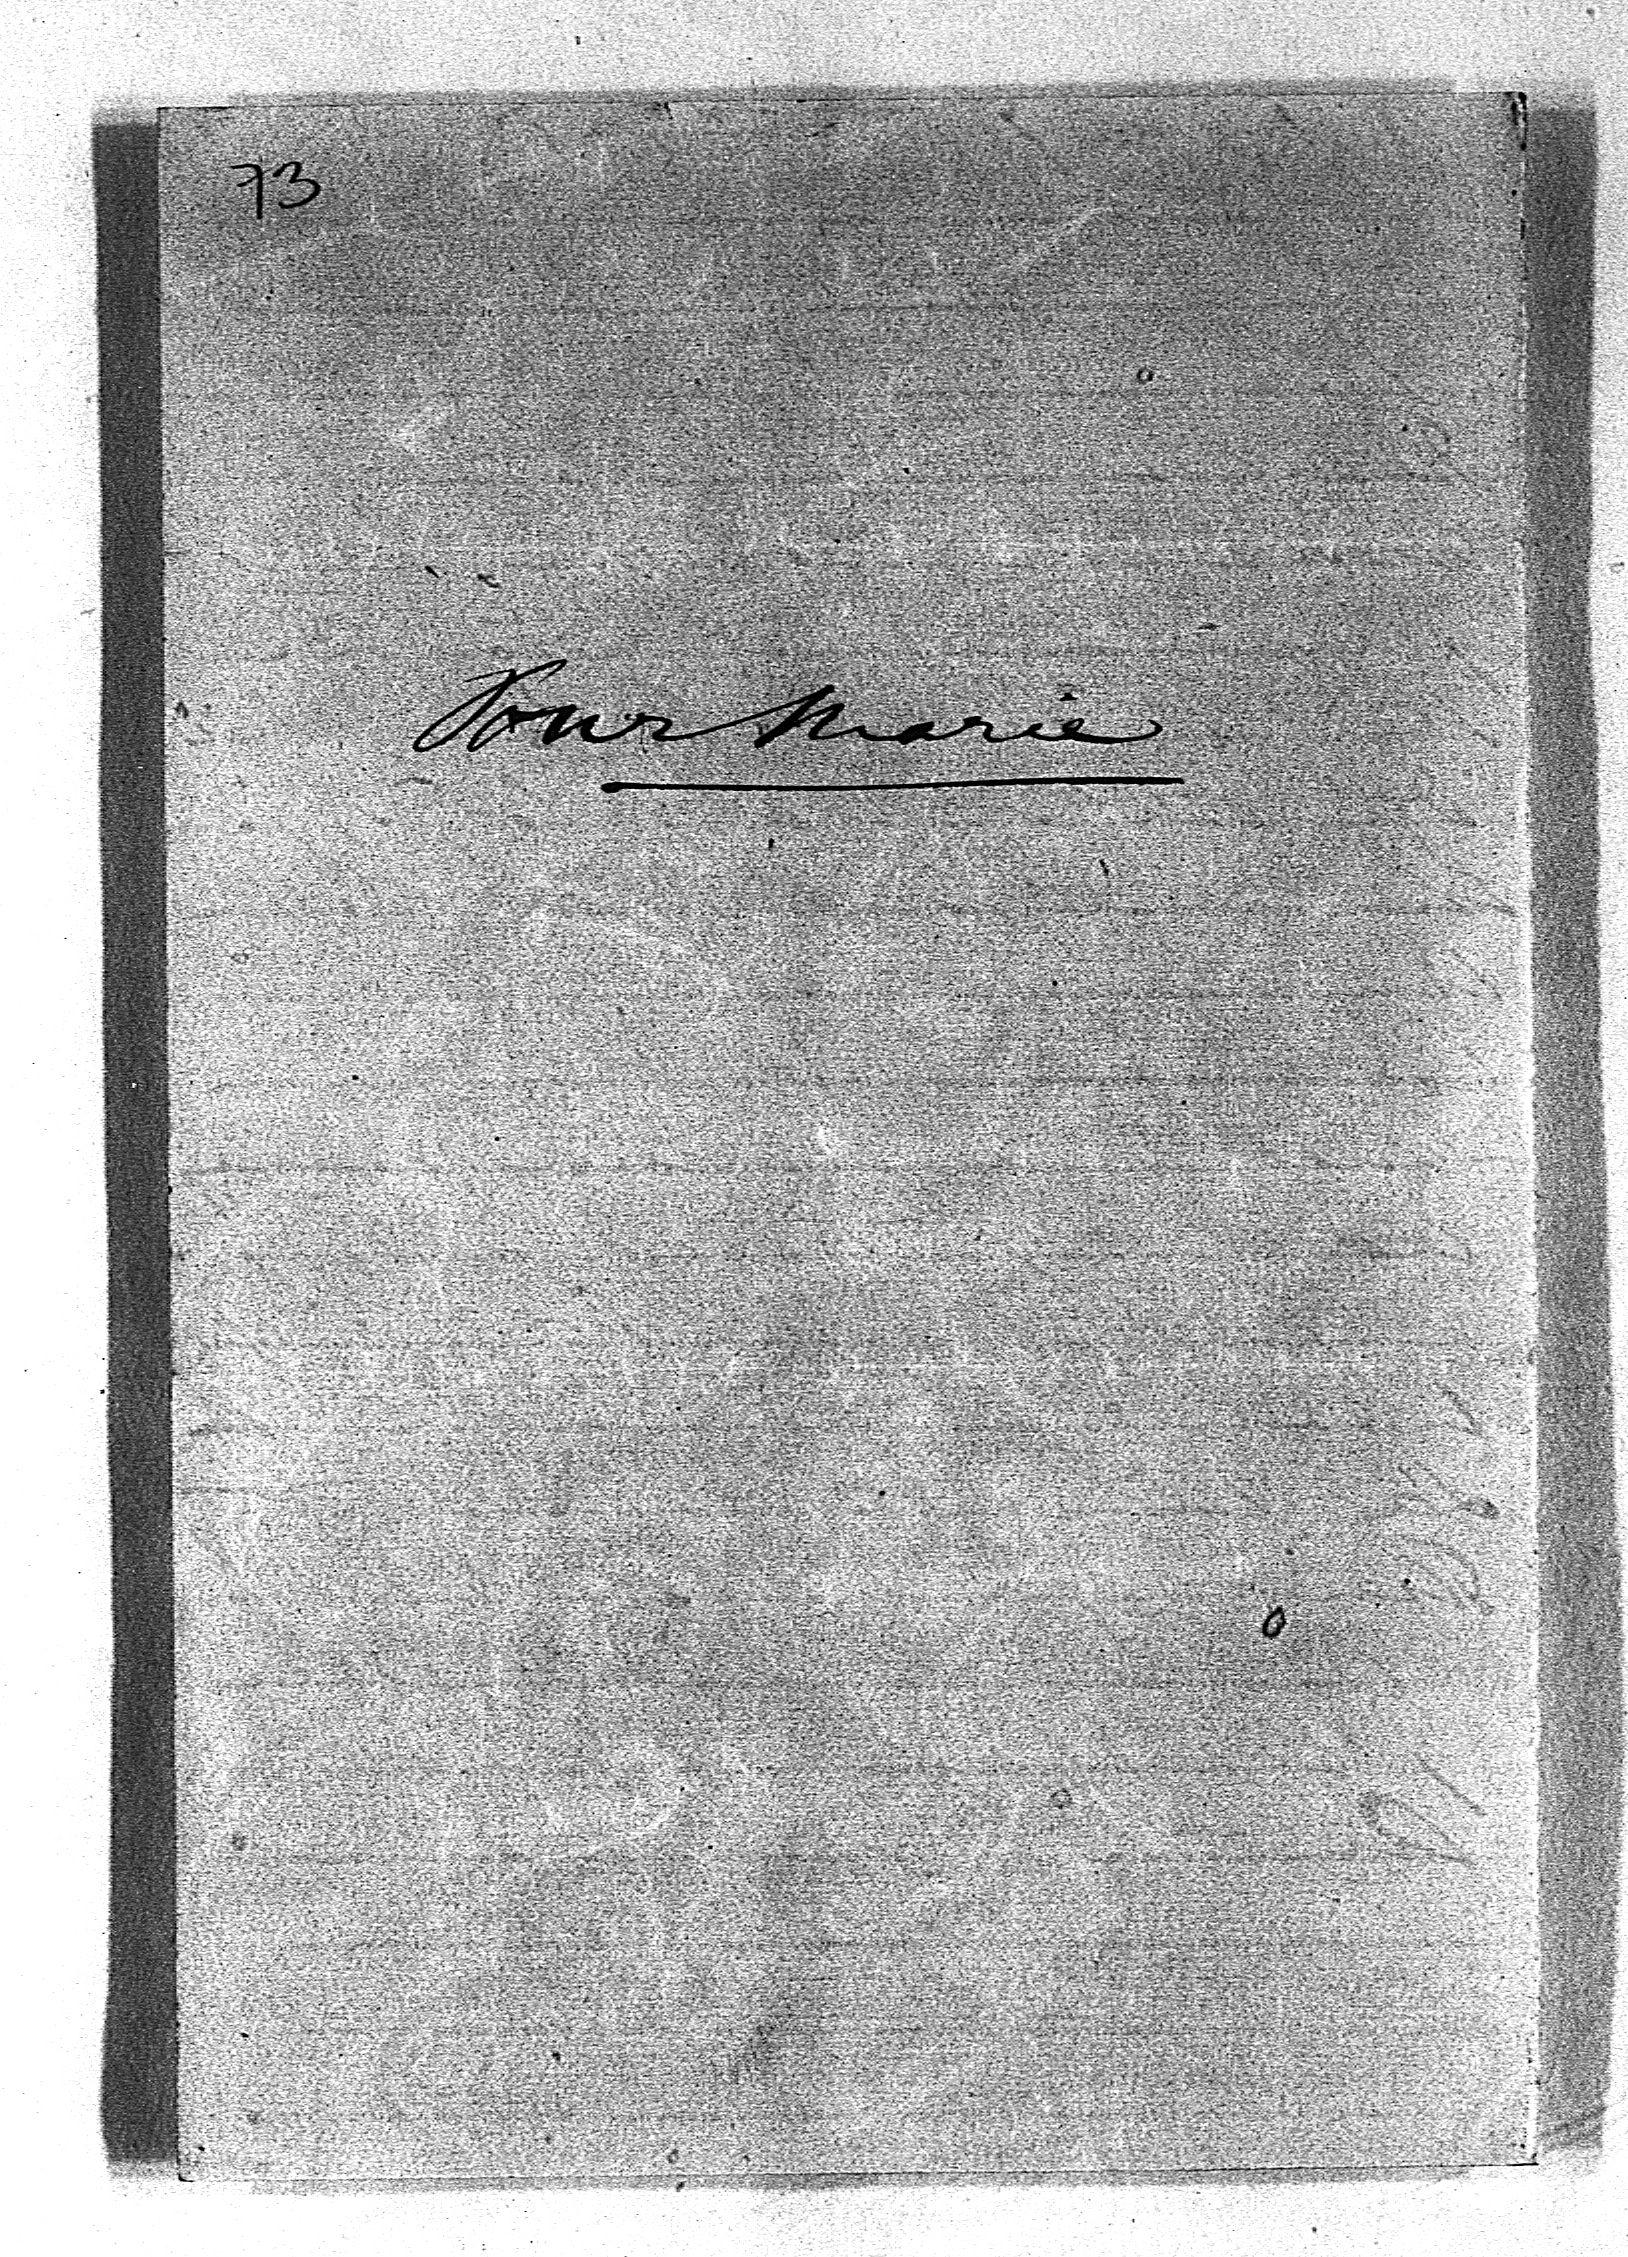 73
Pour Marie